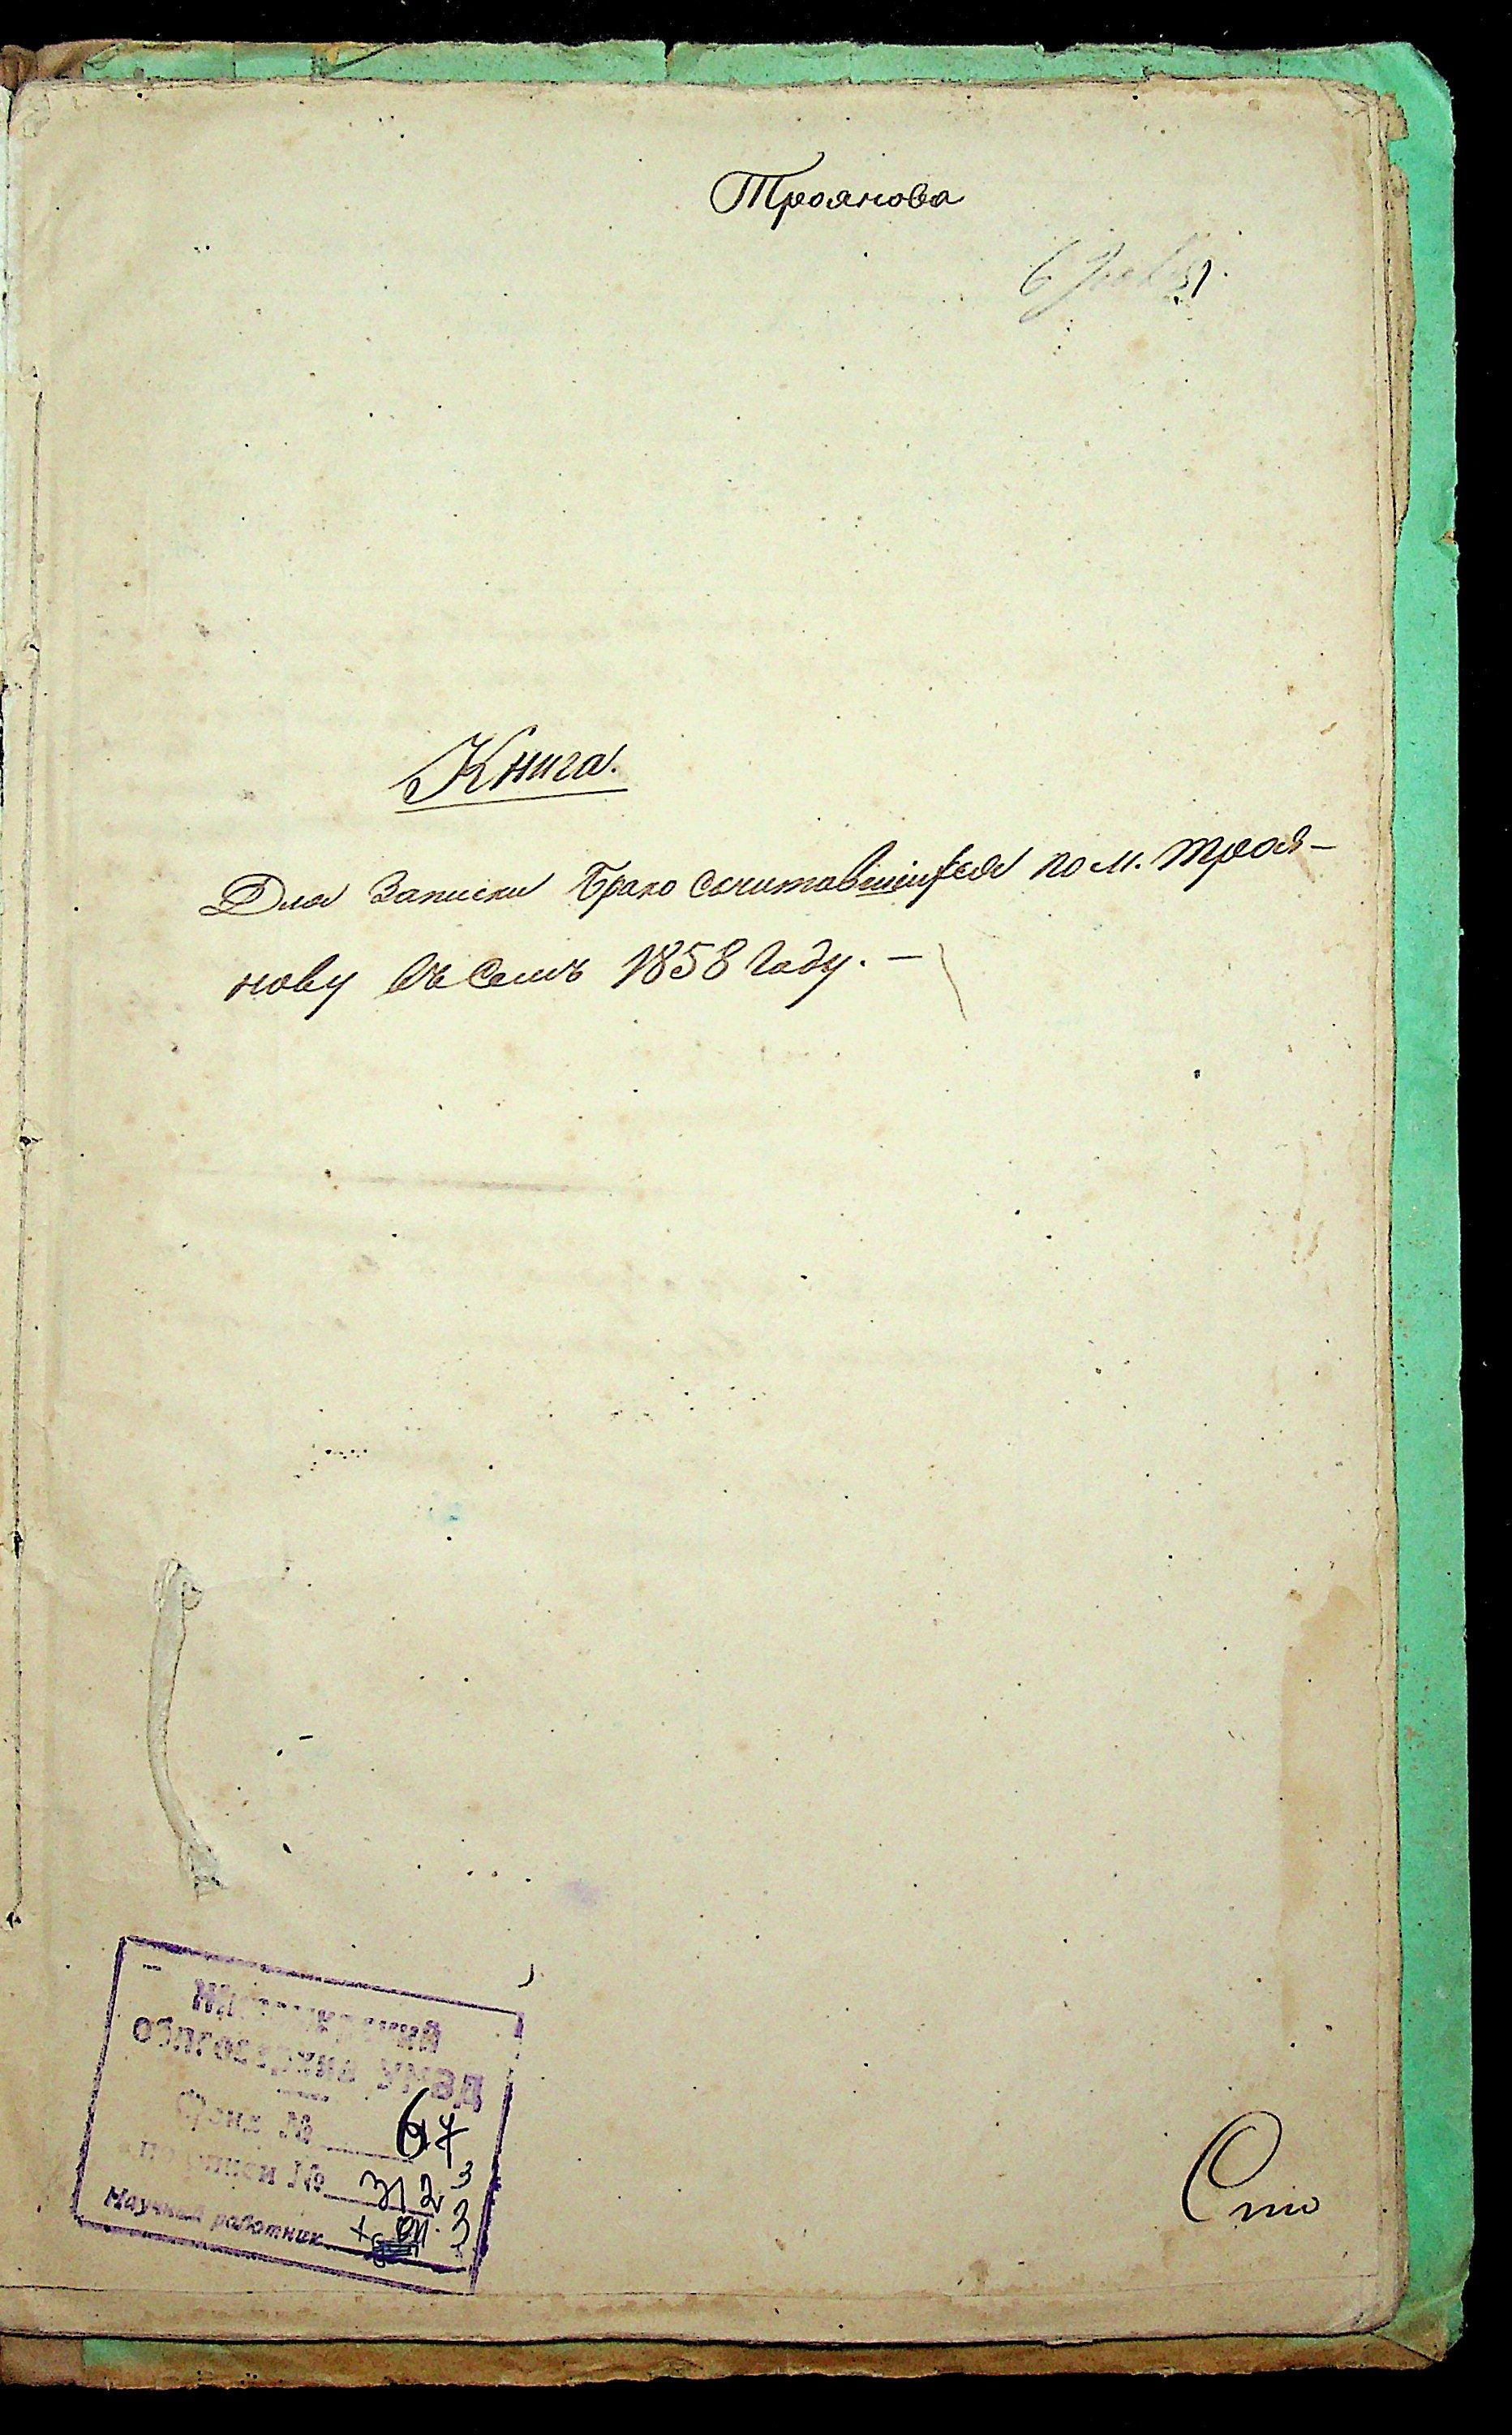 Троянова
Книга.
Для Записки Брако сочитавшихся по м. Троя-
нову въ Семъ 1858 Году. —
облгосархив УМВД
Фонд № 67
по описи № 312 3
Научный работник оп. 3
Сто